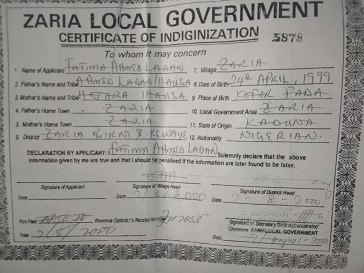 ZARIA LOCAL GOVERNMENT
CERTIFICATE OF INDIGINIZATION 5878
To whom it may concern
1. Name of Applicant FATIMA AHMED LADAN 7. Village ZARIA
2. Father's Name and Tribe AHMED LADAN/HAUSA 8. Date of Birth 24th APRIL, 1999
3. Mother's Name and Tribe HAUSA 9. Place of Birth KOFAR FADA
4. Father's Home Town ZARIA 10. Local Government Area ZARIA
5. Mother's Home Town ZARIA 11. State of Origin KADUNA
6. District ZARIA & 12. Nationality NIGERIAN
DECLARATION BY APPLICANT: FATIMA AHMED LADAN Solemnly declare that the above
information given by me are true and that I should be penalised if the information are later found to be false.
Signature of Applicant Signature of Village Head Signature of District Head
Date Date Date
Fee Paid Revenue Collector's Receipt
Signature of Secretary/Sole Administrator/
Chairman ZARIA LOCAL GOVERNMENT
Date Date